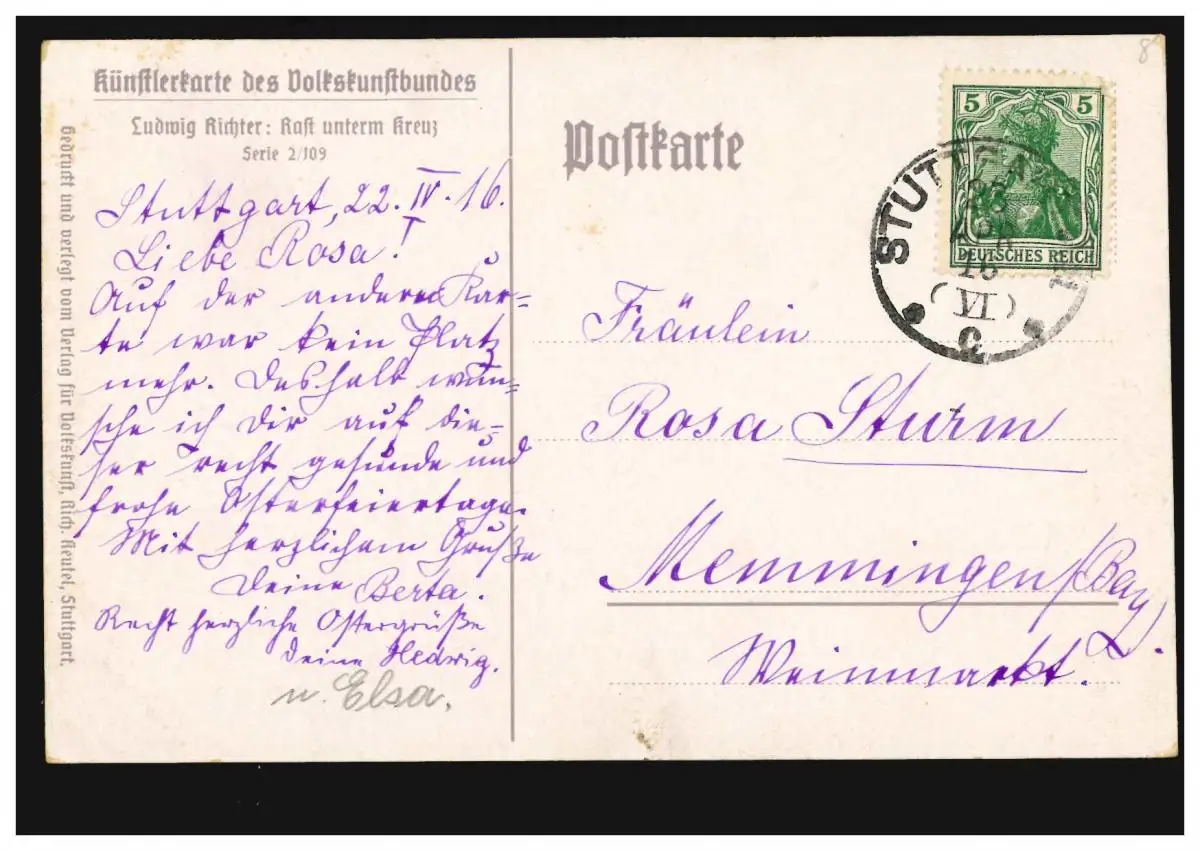 Künstlerkarte des Volkskunstbundes
Ludwig Richter: Rast unterm Kreuz
Serie 2/109
Gedruckt und verlegt vom Verlag für Volkskunst, Rich. Keutel, Stuttgart.
Stuttgart, 22. IV. 16.
Liebe Rosa!
Auf der anderen Kar=
te war kein Platz
mehr. Deshalb wün=
sche ich Dir auf die=
ser recht gesunde und
frohe Osterfeiertage.
Mit herzlichem Gruße
Deine Berta.
Recht herzliche Ostergrüße
Deine Hedwig.
u. Elsa.
Postkarte
5 5
DEUTSCHES REICH
STUTTGART
APR
16
(VI)
C
Fräulein
Rosa Sturm
Memmingen/(Bay)
Weinmarkt.
8